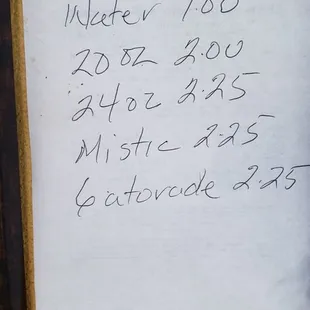 Water 1.00
20 oz 2.00
24 oz 2.25
Mistic 2.25
Gatorade 2.25